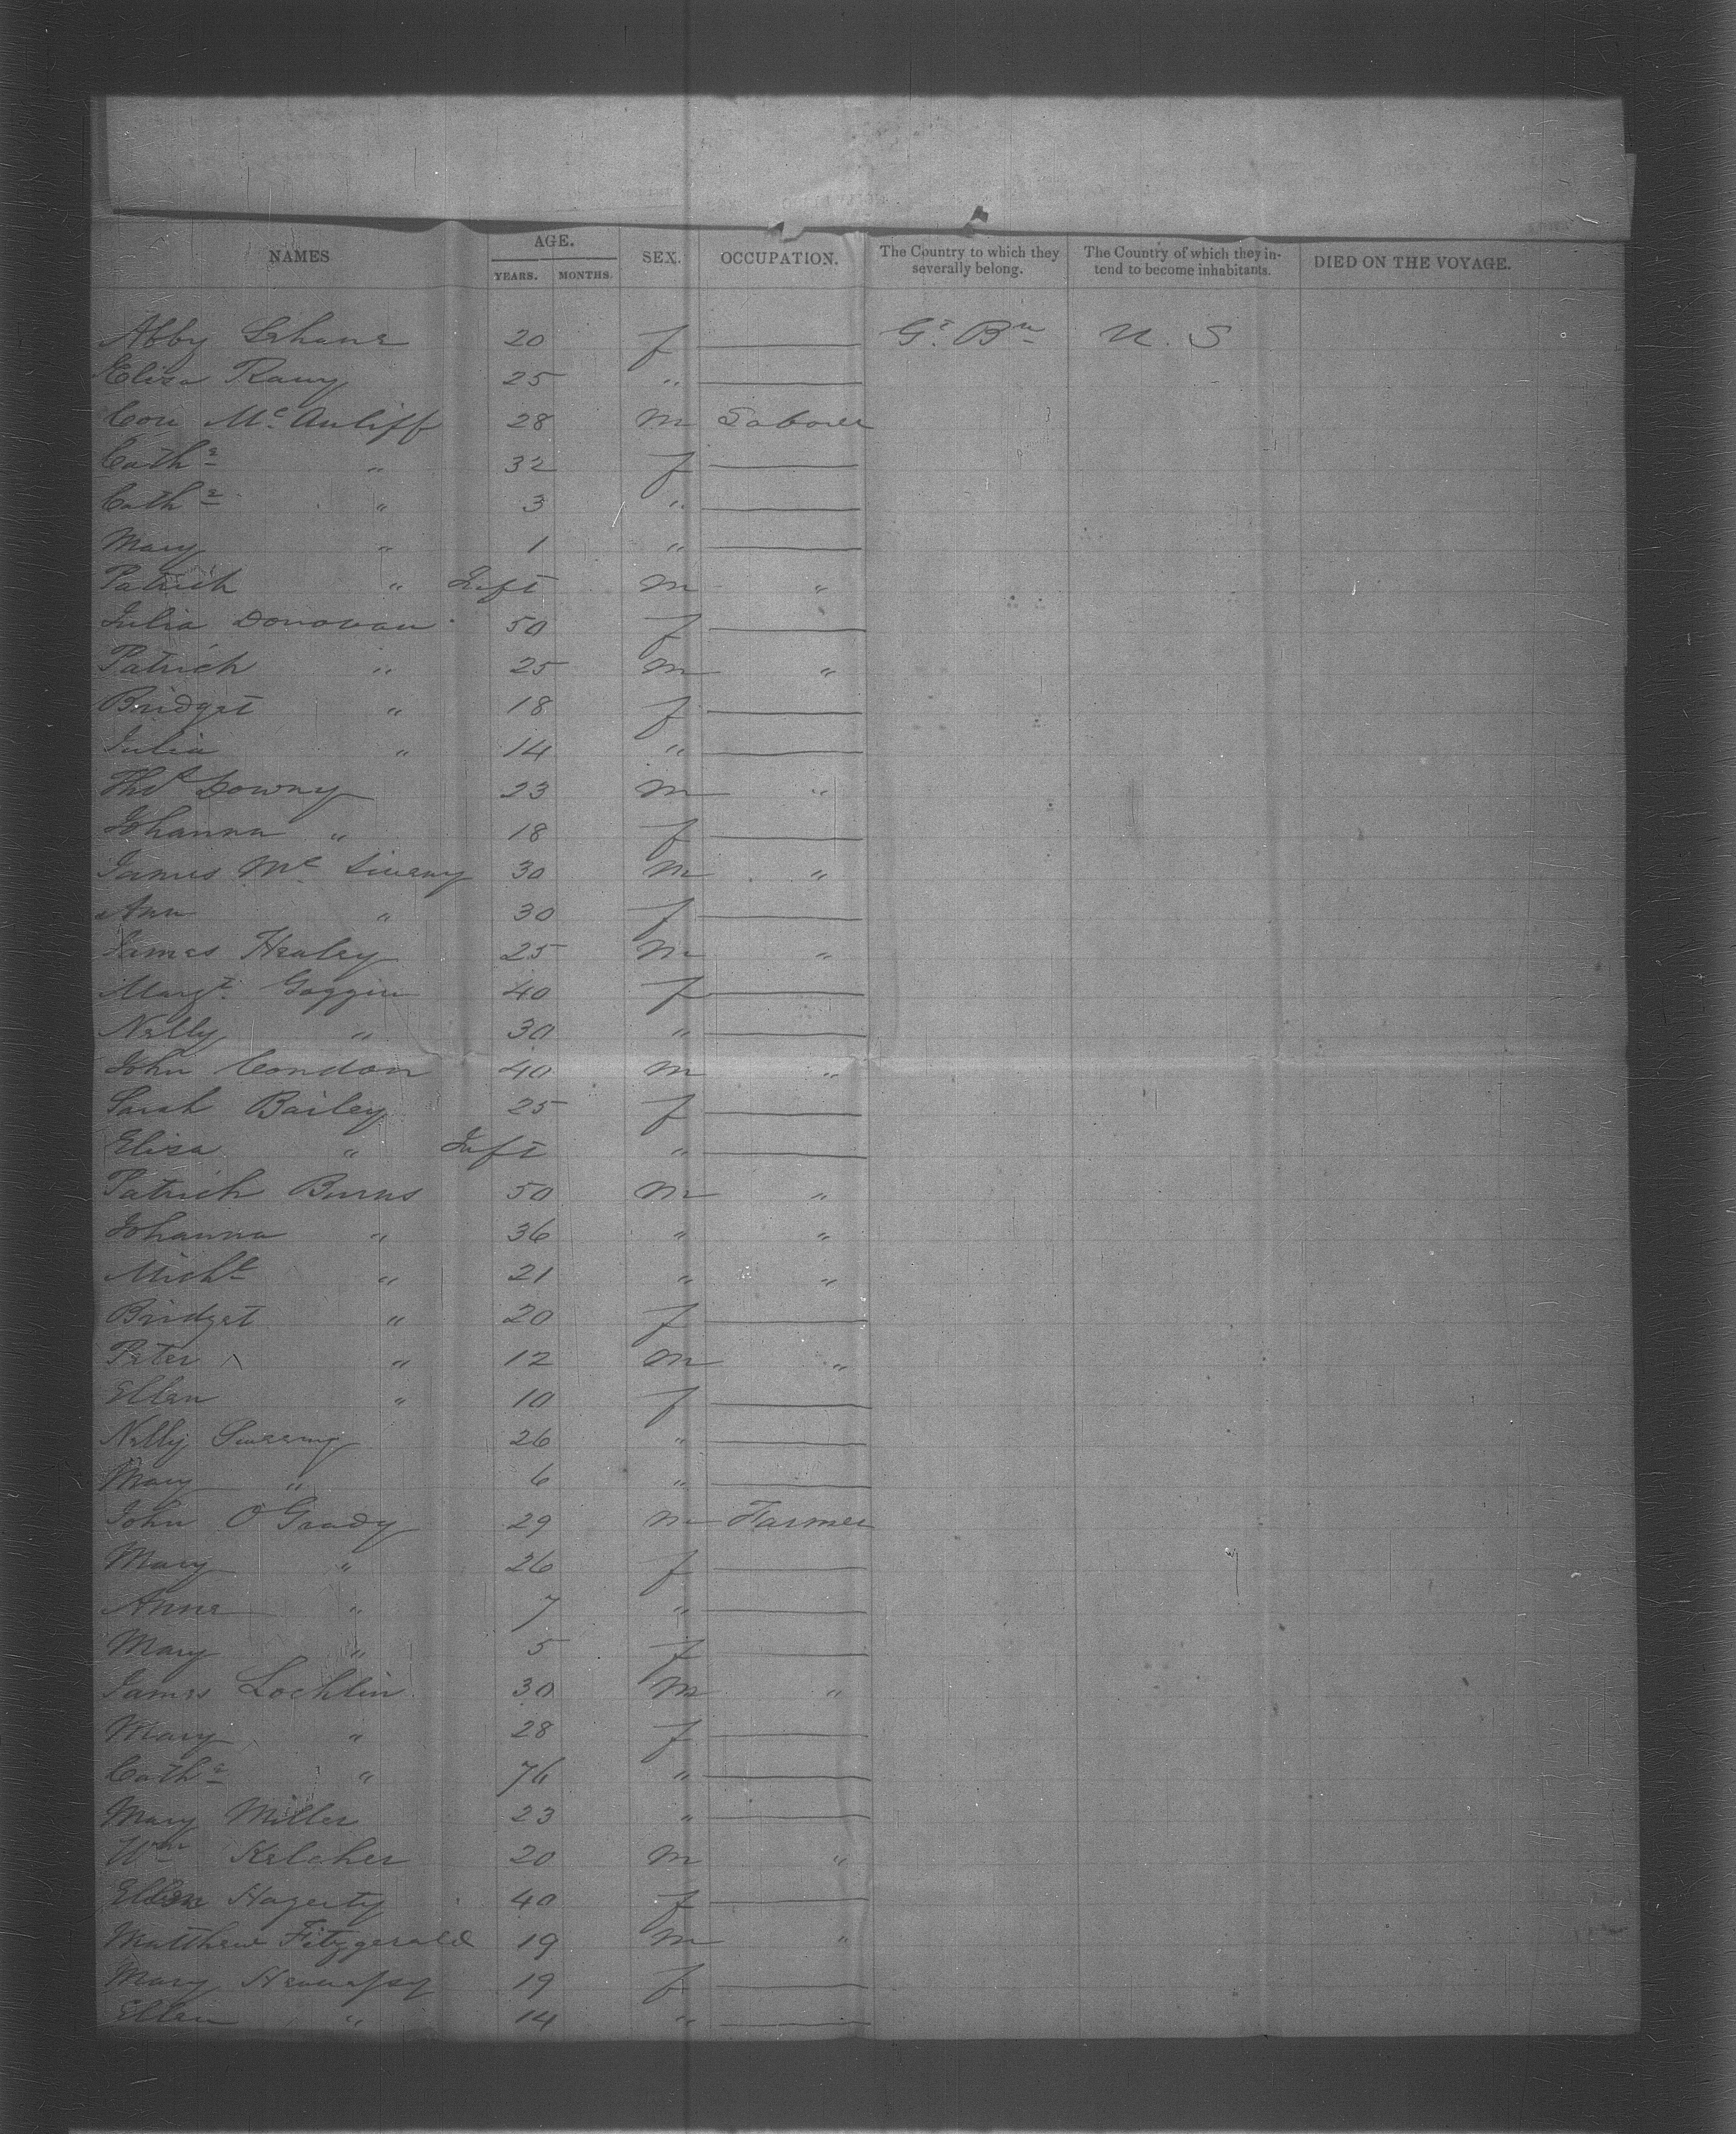 NAMES AGE. YEARS. MONTHS. SEX. OCCUPATION. The Country to which they severally belong. The Country of which they intend to become inhabitants. DIED ON THE VOYAGE.
Abby Lehane 20 f — Gt. Bn U. S
Eliza 25 " —
Con Mc Auliff 28 m Laborer
Cathe " 32 f —
Cathe " 3 " —
Mary " 1 " —
Patrick " Inft m "
Julia Donovan 50 f —
Patrick " 25 m "
Bridget " 18 f —
Julia " 14 " —
Thos Downy 23 m "
Johanna " 18 f —
James Mc Sweeny 30 m "
Ann " 30 f —
James Healey 25 m "
Margt. Goggin 40 f —
Nelly " 30 " —
John Condon 40 m "
Sarah Bailey 25 f —
Eliza " Inft " —
Patrick Burns 50 m "
Johanna " 36 " "
Michl " 21 " "
Bridget " 20 f —
Peter " 12 m "
Ellen " 10 f —
Nelly Sweeny 26 " —
Mary " 6 " —
John O'Grady 29 m Farmer
Mary " 26 f —
Anne " 7 " —
Mary " 5 f —
James Lochlin 30 m "
Mary " 28 f —
Cathe " 76 " —
Mary Miller 23 " —
Wm Keleher 20 m "
Ellen Hagerty 40 f —
Matthew Fitzgerald 19 m "
Mary Hennessy 19 f —
Ellen " 14 " —